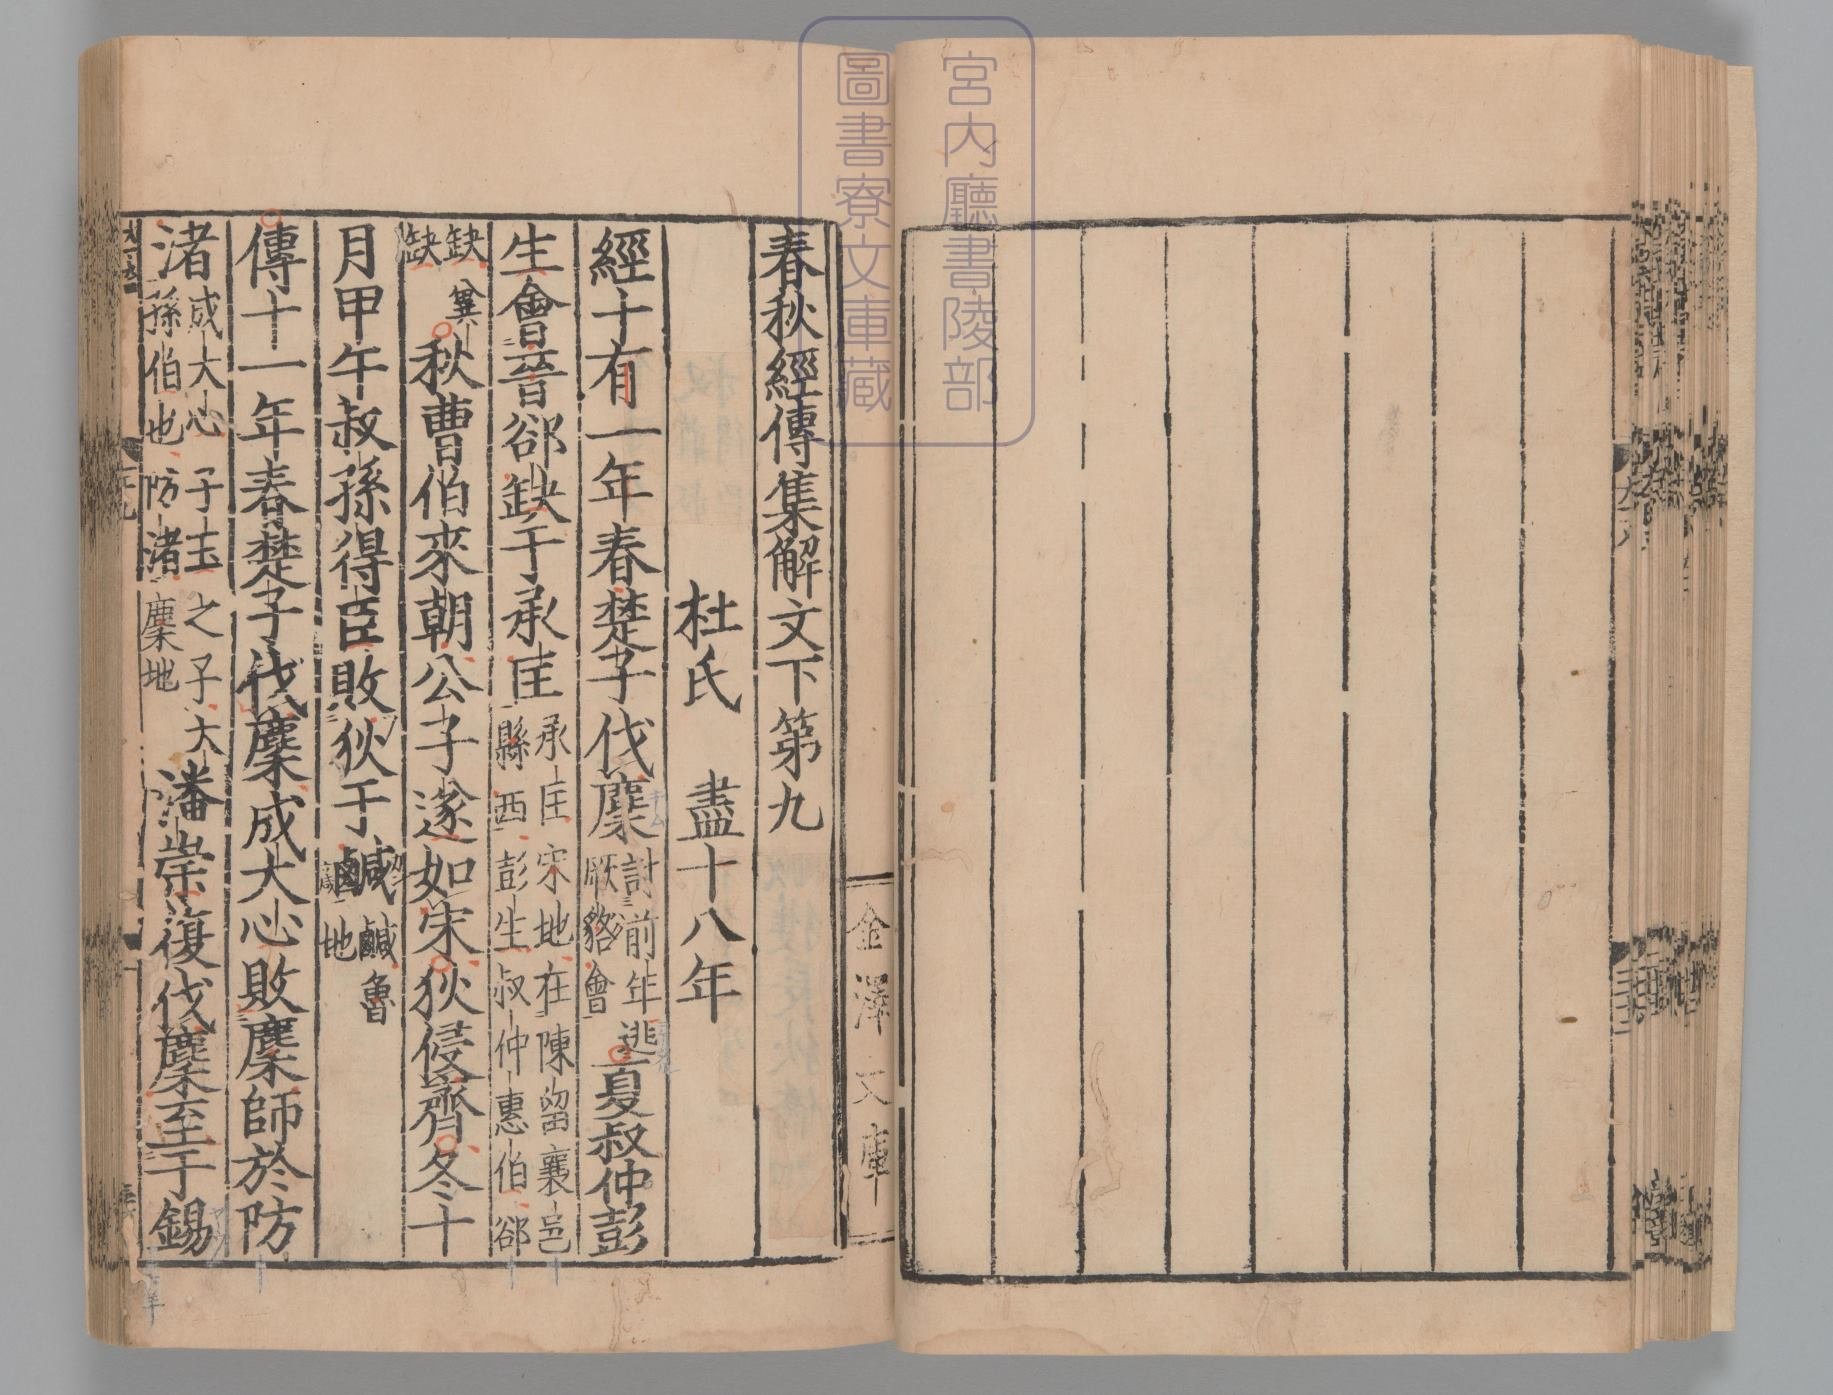 宮内廳書陵部
圖書寮文庫藏
金澤文庫
春秋經傳集解文下第九
杜氏　盡十八年
經十有一年春楚子伐麇討前年逃厥貉會夏叔仲彭
生會晉郤缺于承匡承匡宋地在陳留襄邑縣西彭生叔仲惠伯郤
缺冀缺秋曹伯來朝公子遂如宋狄侵齊冬十
月甲午叔孫得臣敗狄于鹹鹹魯地
傳十一年春楚子伐麇成大心敗麇師於防
渚成大心子玉之子大孫伯也防渚麇地潘崇復伐麇至于錫